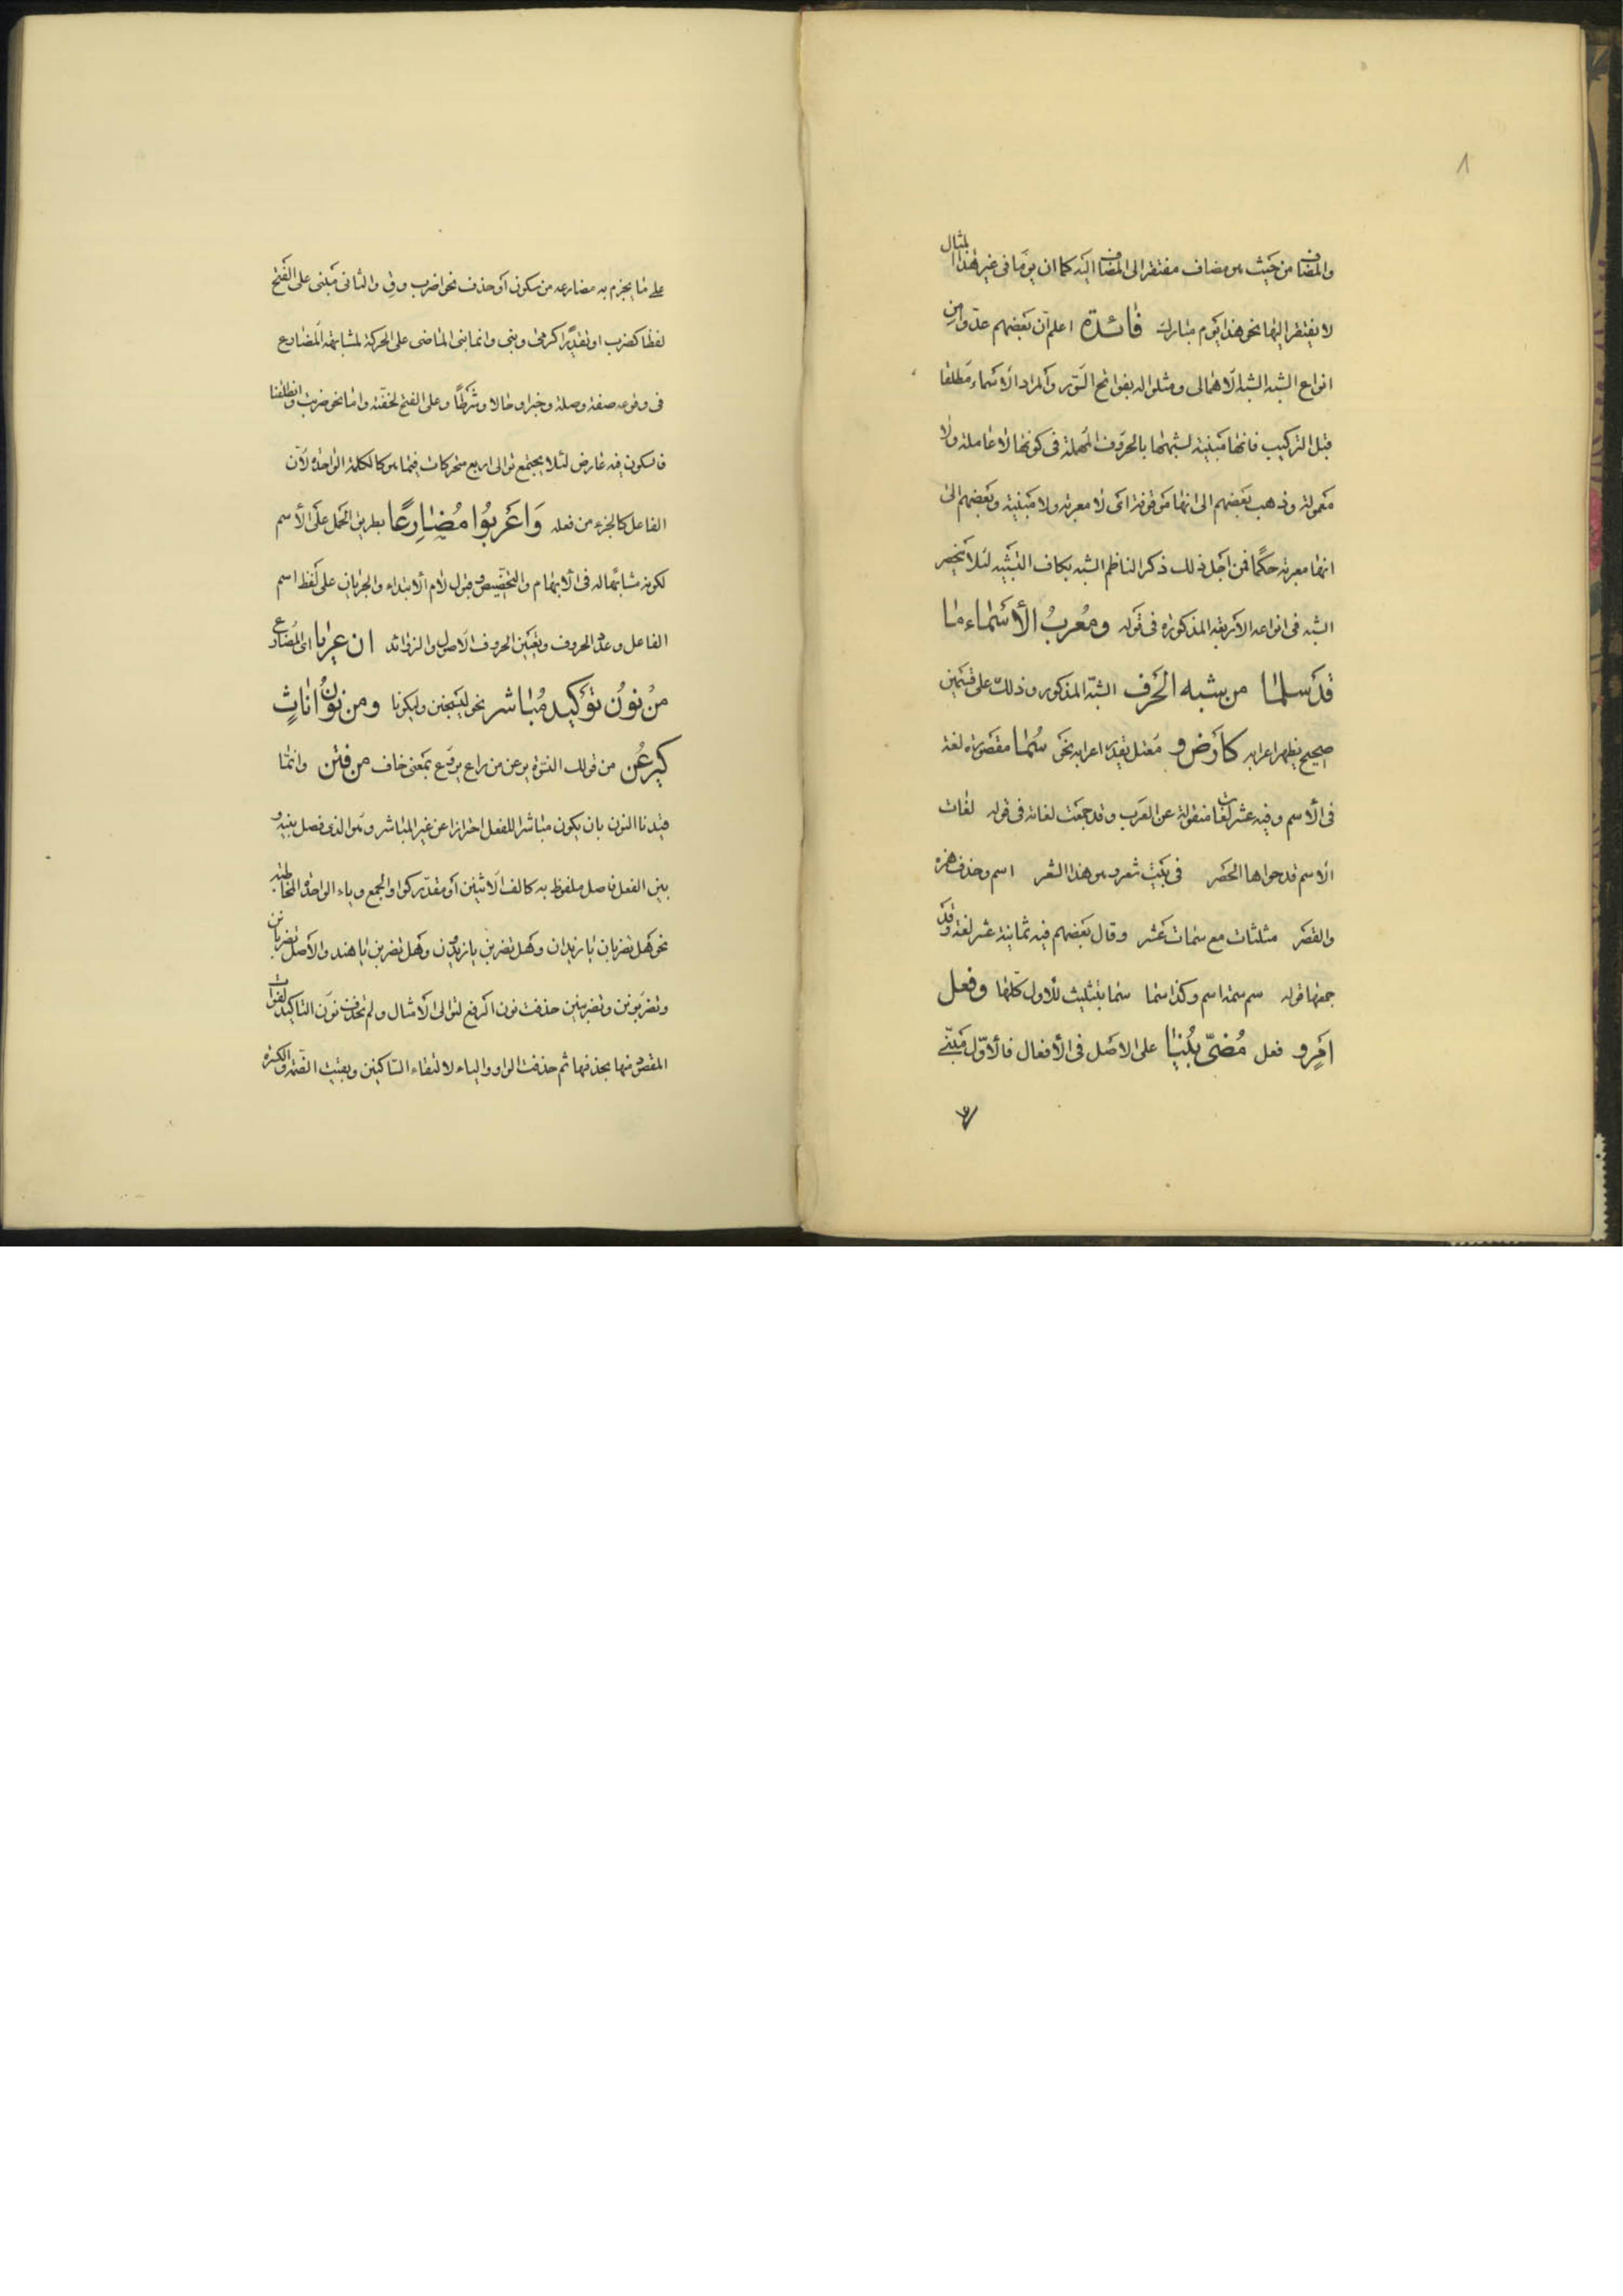 ٨
والمضاف من حيث هو مضاف مفتقر الى المضاف اليه كما ان يوما فى غير هذا المثال
لا يفتقر اليها نحو هذا يوم مبارك فائدة اعلم ان بعضهم عدّ من
انواع الشبه الشبه الاهمالى ومثلوا له بفواتح السّور والمراد الاسماء مطلقا
قبل التركيب فانها مبنية لشبهها بالحروف المهملة فى كونها لا عاملة ولا
معمولة وذهب بعضهم الى انها موقوفة اى لا معربة ولا مبنية وبعضهم الى
انها معربة حكما فمن اجل ذلك ذكر الناظم الشبه بكاف التشبيه لئلا ينحصر
الشبه فى انواعه الاربعة المذكورة فى قوله ومُعربُ الأسَماء ما
قدَ سلما من شبه الحَرف الشبه المذكور وذلك على قسمين
صحيح يظهر اعرابه كأَرض و معتل يقدر اعرابه نحو سُما مقصورة لغة
فى الأسم وفيه عشر لغات منقولة عن العرب وقد جمعت لغاته فى قوله لغات
الاسم قد حواها الحصر فى بيت شعر وهو هذا الشعر اسم وحذف همزه
والقصر مثلثات مع سمات عشر وقال بعضهم فيه ثمانية عشر لغة وقد
جمعها قوله سم سمة اسم وكذا سما سما بتثليث لاول كلها وفعل
امَرٍ و فعل مُضىّ بُنيا على الاصل فى الأفعال فالأوّل مبنىّ
على ما يجزم به مضارعه من سكون أو حذف نحو اضرب وق والثانى مبنى على الفتح
لفظا كضرب او تقديرا كرمى وبنى وانما بنى الماضى على الحركة لمشابهته المضارع
فى وقوعه صفة وصلة وخبرا وحالا وشرطا وعلى الفتح لخفته واما نحو ضربت وانطلقنا
فالسكون فيه عارض لئلا يجتمع توالى اربع متحركات فيما هو كالكلمة الواحدة لأن
الفاعل كالجزء من فعله وَاعَربُوا مُضارِعًا بطريق الحمل على الأسم
لكونه مشابها له فى الأبهام والتخصيص وقبول لام الأبتداء والجريان على لفظ اسم
الفاعل وعدد الحروف وتعيين الحروف الاصول والزوائد ان عرِيا اى المضارع
منُ نوُن توَكيد مُباشر نحو ليسجنن وليكونا ومن نوُن اناثٍ
كيرعُن من قولك النسوة يرعن من راع يروع بمعنى خاف من فتن وانما
قيدنا النون بان يكون مباشرا للفعل احترازا عن غير المباشر وهو الذى فصل بينه و
بين الفعل فاصل ملفوظ به كالف الاثنين أو مقدر كواو الجمع وياء الواحدة المخاطبة
نحو هل تضربان يا زيدان وهل تضربن يا زيدون وهل تضربن يا هند والأصل تضربانن
وتضربونن وتضربينن حذفت نون الرفع لتوالى الأمثال ولم تحذف نون التاكيد لفوات
المقصود منها بحذفها ثم حذفت الواو والياء لالتقاء الساكنين وبقيت الضمة والكسرة